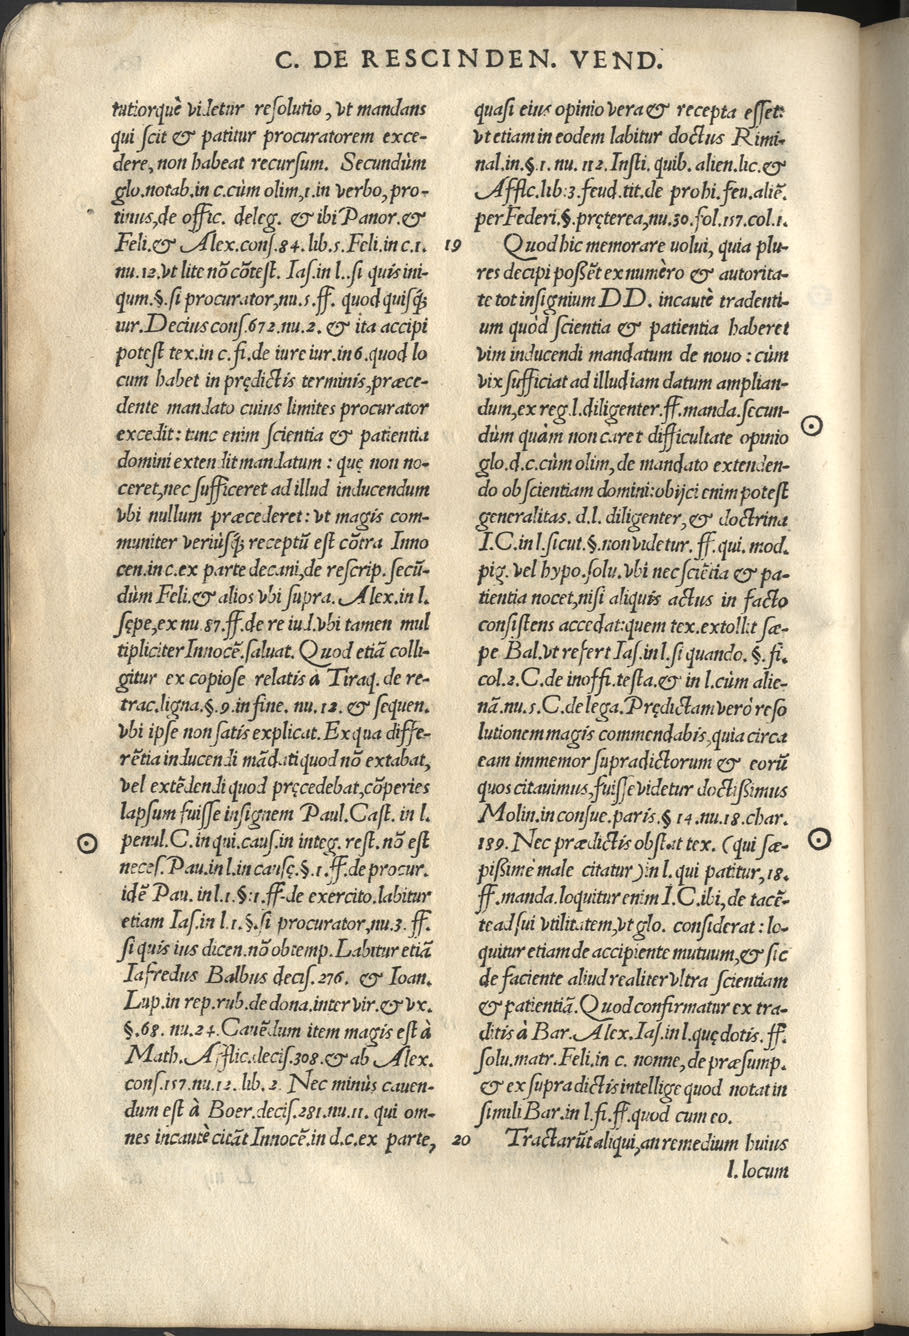 C. DE RESCINDEN. VEND.
tutiorquè videtur reſolutio, vt mandans
qui ſcit & patitur procuratorem exce-
dere, non habeat recurſum. Secundùm
glo.notab.in c.cùm olim,1.in verbo, pro-
tinus,de offic. deleg. & ibi Panor.&
Feli.& Alex.conſ.84.lib.5.Feli.in c.1.
nu.12.vt lite nõ cõteſt. Iaſ.in l..ſi quis ini-
qum.§.ſi procurator,nu.5.ff. quod quiſq́;
iur.Decius conſ.672.nu.2. & ita accipi
poteſt tex.in c.fi.de iure iur.in 6.quod lo
cum habet in prędictis terminis,præce-
dente mandato cuius limites procurator
excedit: tunc enim ſcientia & patientia
domini extendit mandatum : quę non no-
ceret,nec ſufficeret ad illud inducendum
vbi nullum præcederet: vt magis com-
muniter veriùſq́; receptũ eſt cõtra Inno
cen.in c.ex parte decani,de reſcrip.ſecũ-
dùm Feli.& alios vbi ſupra. Alex.in l.
ſępe,ex nu.87.ff.de re iu.l.vbi tamen mul
tipliciter Innocẽ.ſaluat. Quod etiã colli-
gitur ex copioſe relatis à Tiraq. de re-
trac.ligna.§.9.in fine. nu.12. & ſequen.
vbi ipſe non ſatis explicat. Ex qua diffe-
rẽtia inducendi mãdati quod nõ extabat,
vel extẽdendi quod pręcedebat,cõperies
lapſum fuiſſe inſignem Paul.Caſt. in l.
penul.C.in qui.cauſ.in integ.reſt.nõ eſt
neceſ.Pau.in l.in cauſę.§.1.ff.de procur.
idẽ Pau. in l.1.§:1.ff.de exercito.labitur
etiam Iaſ.in l.1.§.ſi procurator,nu.3. ff.
ſi quis ius dicen.nõ obtemp.Labitur etiã
Iafredus Balbus deciſ.276. & Ioan.
Lup.in rep.rub.de dona.inter vir.& vx.
§.68. nu.24.Cauẽdum item magis eſt à
Math.Afflic.deciſ.308.& ab Alex.
conſ.157.nu.12.lib.2. Nec minùs cauen-
dum eſt à Boer.deciſ.281.nu.11. qui om-
nes incautè citãt Innocẽ.in d.c.ex parte,
quaſi eius opinio vera & recepta eſſet:
vt etiam in eodem labitur doctus Rimi-
nal.in.§.1.nu.112.Inſti.quib.alien.lic.&
Afflic.lib.3.feud.tit.de prohi.feu.aliẽ.
per Federi.§.pręterea,nu.30.fol.157.col.1.
19 Quod hic memorare uolui, quia plu-
res decipi poßẽt ex numèro & autorita-
te tot inſignium DD. incautè tradenti-
um quòd ſcientia & patientia haberet
vim inducendi mandatum de nouo : cùm
vix ſufficiat ad illud iam datum amplian-
dum,ex reg.l.diligenter.ff.manda.ſecun-
dùm quàm non caret difficultate opinio
glo.d.c.cùm olim,de mandato extenden-
do ob ſcientiam domini:obijci enim poteſt
generalitas. d.l. diligenter,& doctrina
I.C.in l.ſicut.§.non videtur. ff.qui.mod.
pig. vel hypo.ſolu.vbi nec ſciẽtia & pa-
tientia nocet,niſi aliquis actus in facto
conſiſtens accedat:quem tex.extollit ſæ-
pe Bal.vt refert Iaſ.in l.ſi quando. §. fi.
col.2.C.de inoffi.teſta.& in l.cùm alie-
nã.nu.5.C.de lega.Prędictam verò reſo
lutionem magis commendabis,quia circa
eam immemor ſupradictorum & eorũ
quos citauimus,fuiſſe videtur doctißimus
Molin.in conſue.pariſ.§ 14.nu.18.char.
189. Nec prædictis obſtat tex. (qui ſæ-
pißimè male citatur) in l. qui patitur,18.
ff.manda.loquitur enim I.C.ibi,de tacẽ-
te ad ſui vtilitatem,vt glo. conſiderat : lo-
quitur etiam de accipiente mutuum,& ſic
de faciente aliud realiter vltra ſcientiam
& patientiã. Quod confirmatur ex tra-
ditis à Bar. Alex.Iaſ.in l.quę dotis. ff.
ſolu.matr.Feli.in c. nonne,de præſump.
& ex ſupradictis intellige quod notat in
ſimili Bar.in l.fi.ff.quod cum eo.
20 Tractarũt aliqui,an remedium huius
l. locum